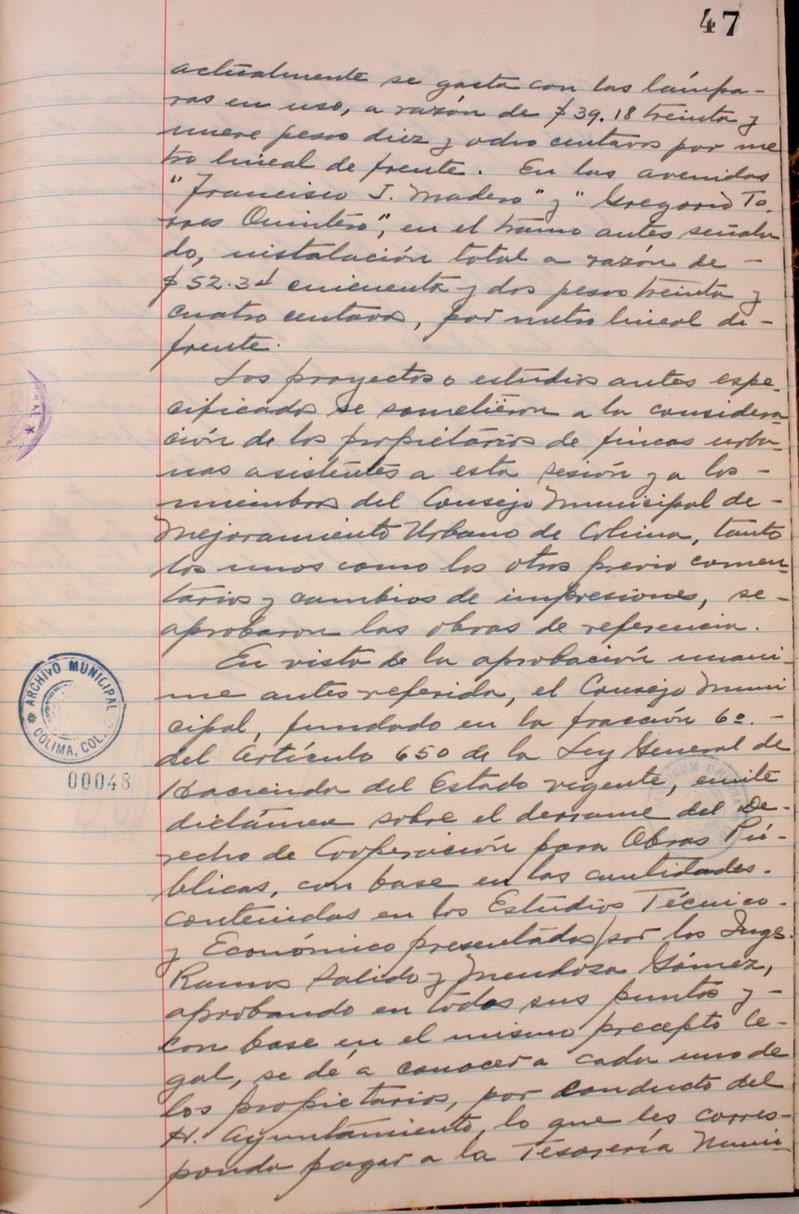 47
actualmente se gasta con las lámpa-
ras en uso, a razón de $39.18 treinta y
nueve pesos diez y ocho centavos por me
tro lineal de frente. En las avenidas
"Francisco I. Madero" y "Gregorio To-
rres Quintero", en el tramo antes señala
do, instalación total a razón de -
$52.34 cincuenta y dos pesos treinta y
cuatro centavos, por metro lineal de -
frente.
Los proyectos o estudios antes espe-
cificados se sometieron a la considera
ción de los propietarios de fincas urba-
nas asistentes a esta sesión y a los -
miembros del Consejo Municipal de -
Mejoramiento Urbano de Colima, tanto
los unos como los otros previo comen-
tarios y cambios de impresiones, se -
aprobaron las obras de referencia.
En vista de la aprobación unani-
me antes referida, el Consejo Muni
cipal, fundado en la fracción 6a. -
del Artículo 650 de la Ley General de
Hacienda del Estado vigente, emite
dictámen sobre el derrame del De-
recho de Cooperación para Obras Pú-
blicas, con base en las cantidades -
contenidas en los Estudios Técnico -
y Económico presentados por los Ings.
Ramos Salido y Mendoza Gómez,
aprobando en todos sus puntos y -
con base en el mismo precepto le-
gal, se dé a conocer a cada uno de
los propietarios, por conducto del
H. Ayuntamiento, lo que les corres-
ponda pagar a la Tesorería Muni-
ARCHIVO MUNICIPAL
COLIMA, COL.
00048